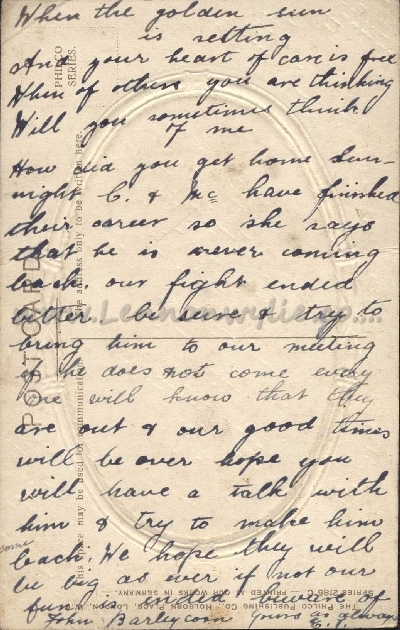 When the golden sun
is setting
And your heart of care is free
When of others you are thinking
Will you sometimes think
of me
How did you get home Sun-
night C. & Mc have finished
their career so she says
that he is never coming
back. our fight ended
better be sure & try to
bring him to our meeting
if he does not come every
one will know that they
are out & our good times
will be over hope you
will have a talk with
him & try to make him
come
back. We hope they will
be big as ever if not our
fun is ended beware of
John Barleycorn yours as always
PHILCO
SERIES.
POST CARD
This space may be used for communication
The address only to be written here.
THE PHILCO PUBLISHING CO. HOLBORN PLACE, LONDON, W.C.
SERIES 2188 C PRINTED AT OUR WORKS IN GERMANY.